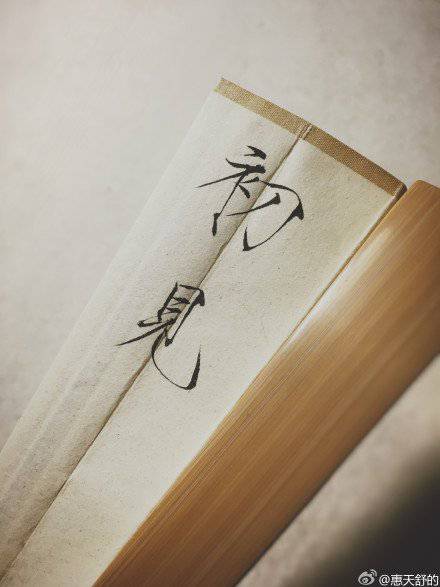 初見
@惠天舒的